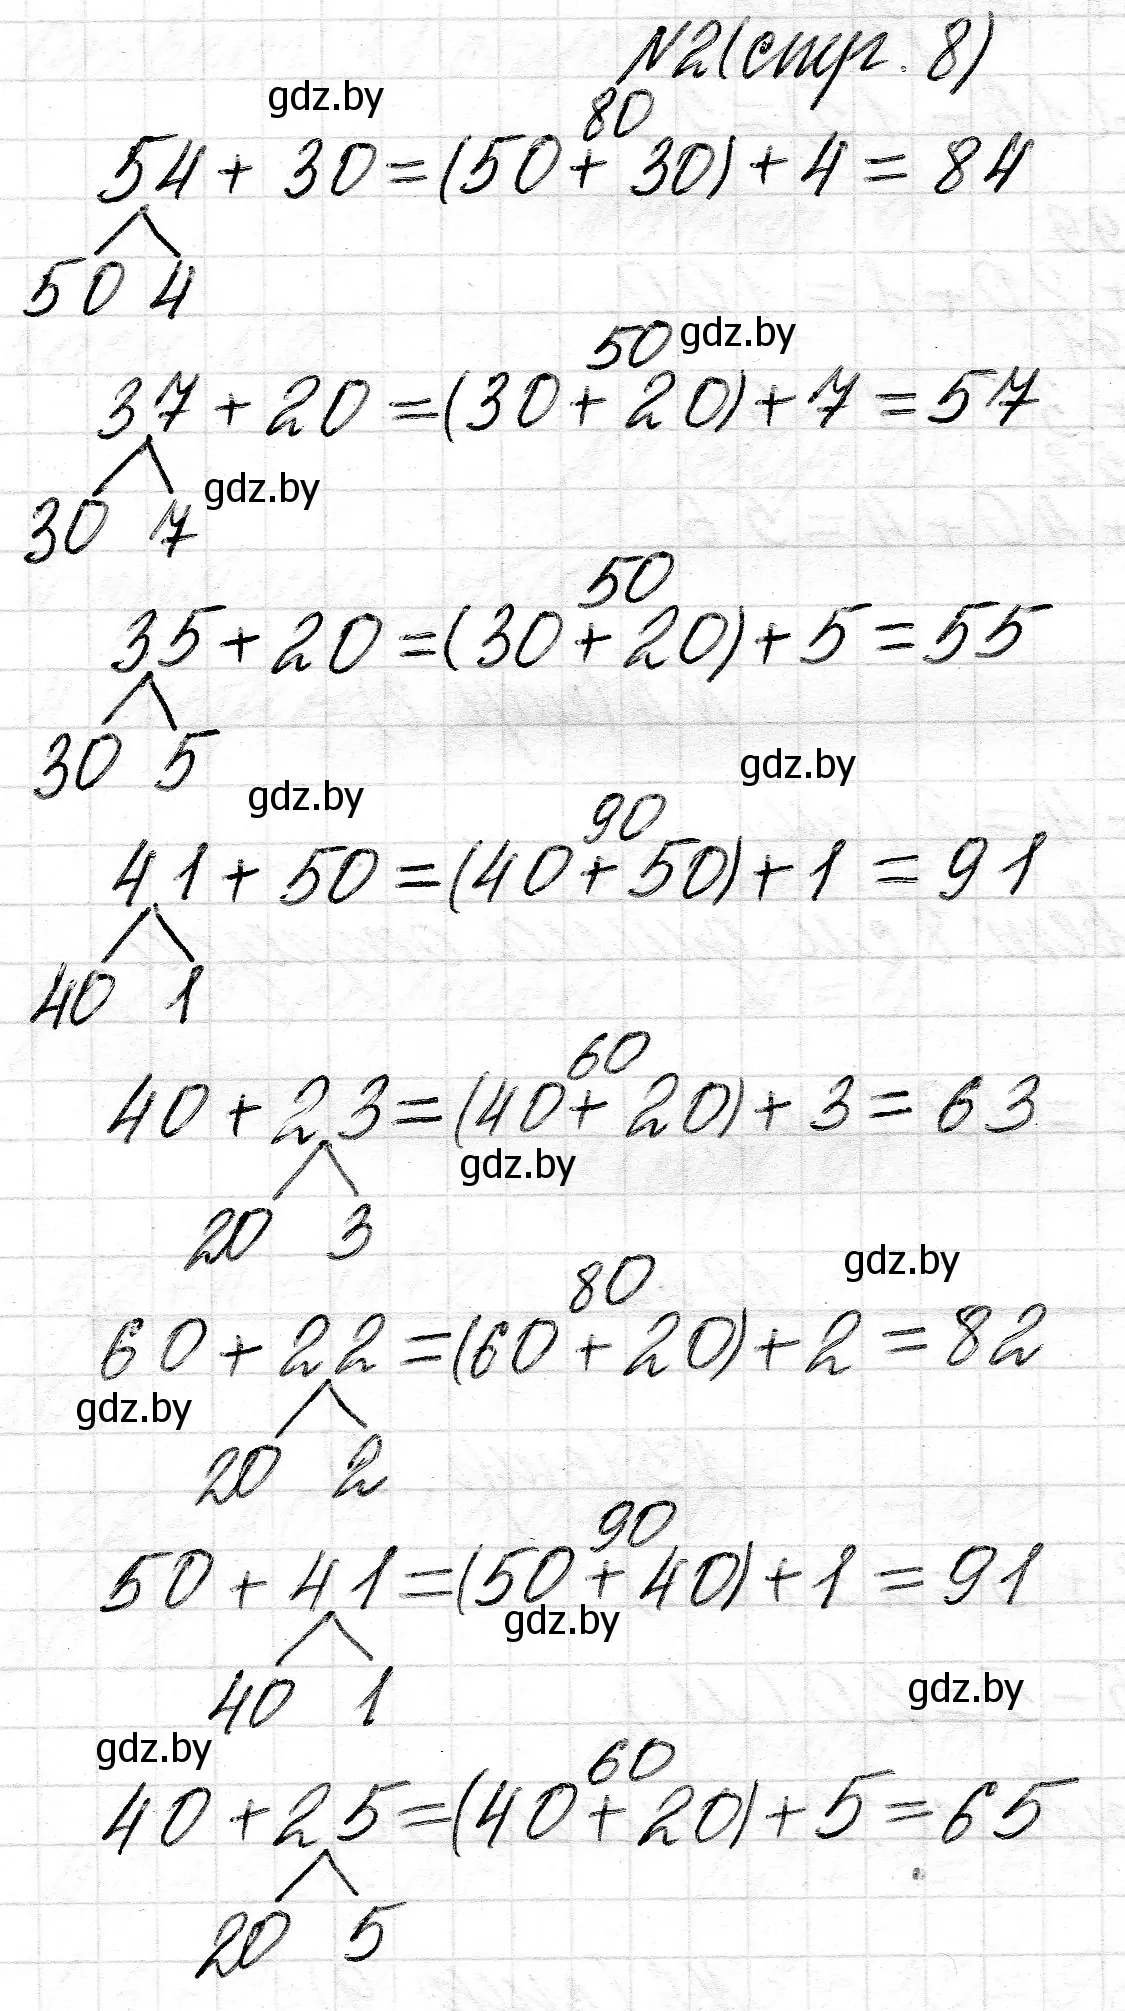 №2(стр. 8)
gdz.by
80
54 + 30 = (50 + 30) + 4 = 84
50 4
50 gdz.by
37 + 20 = (30 + 20) + 7 = 57
30 7 gdz.by
50
35 + 20 = (30 + 20) + 5 = 55
30 5
gdz.by gdz.by
90
41 + 50 = (40 + 50) + 1 = 91
40 1
60
40 + 23 = (40 + 20) + 3 = 63
gdz.by
20 3
80 gdz.by
60 + 22 = (60 + 20) + 2 = 82
gdz.by
20 2
90
50 + 41 = (50 + 40) + 1 = 91
gdz.by
40 1
gdz.by
gdz.by 60
40 + 25 = (40 + 20) + 5 = 65
20 5